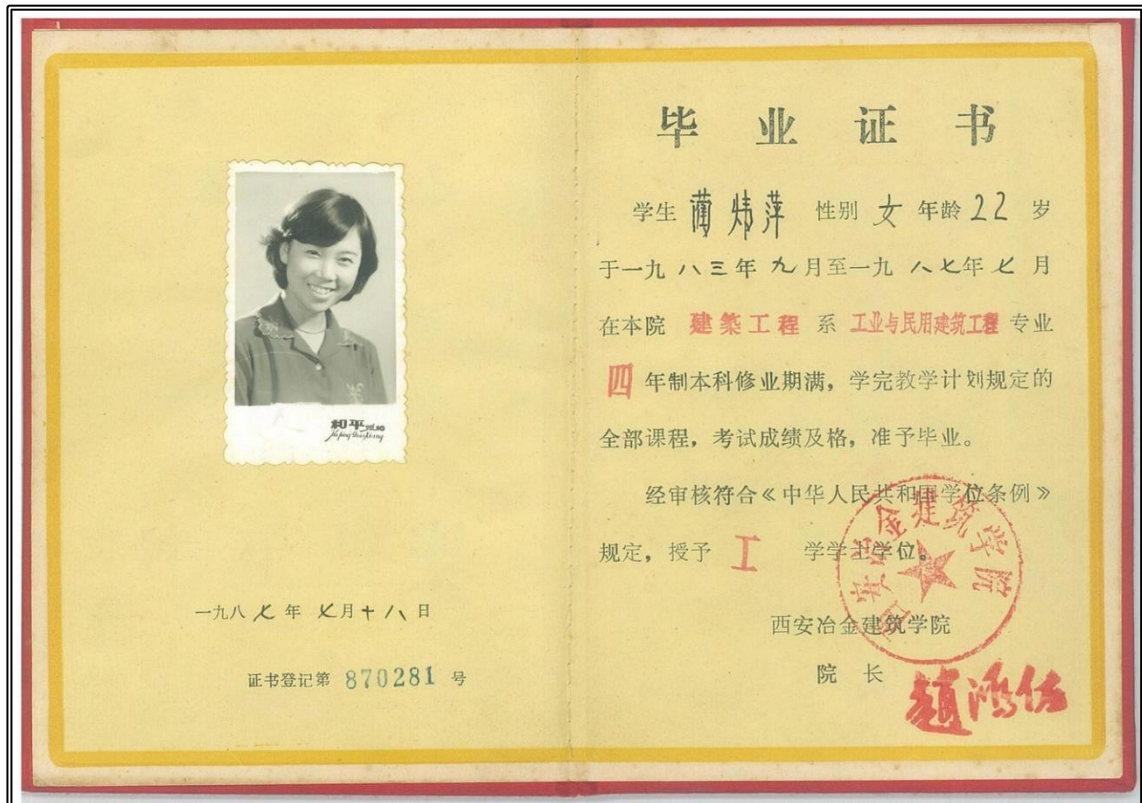 和平
一九八七年 七月十八日
证书登记第 870281 号
毕业证书
学生 蔺炜萍 性别 女 年龄 22 岁
于一九八三年九月至一九八七年七月
在本院 建築工程 系 工业与民用建筑工程 专业
四年制本科修业期满，学完教学计划规定的
全部课程，考试成绩及格，准予毕业。
经审核符合《中华人民共和国学位条例》
规定，授予 工 学学士学位。
西安冶金建筑学院
西安冶金建筑学院
院 长 趙鴻佐